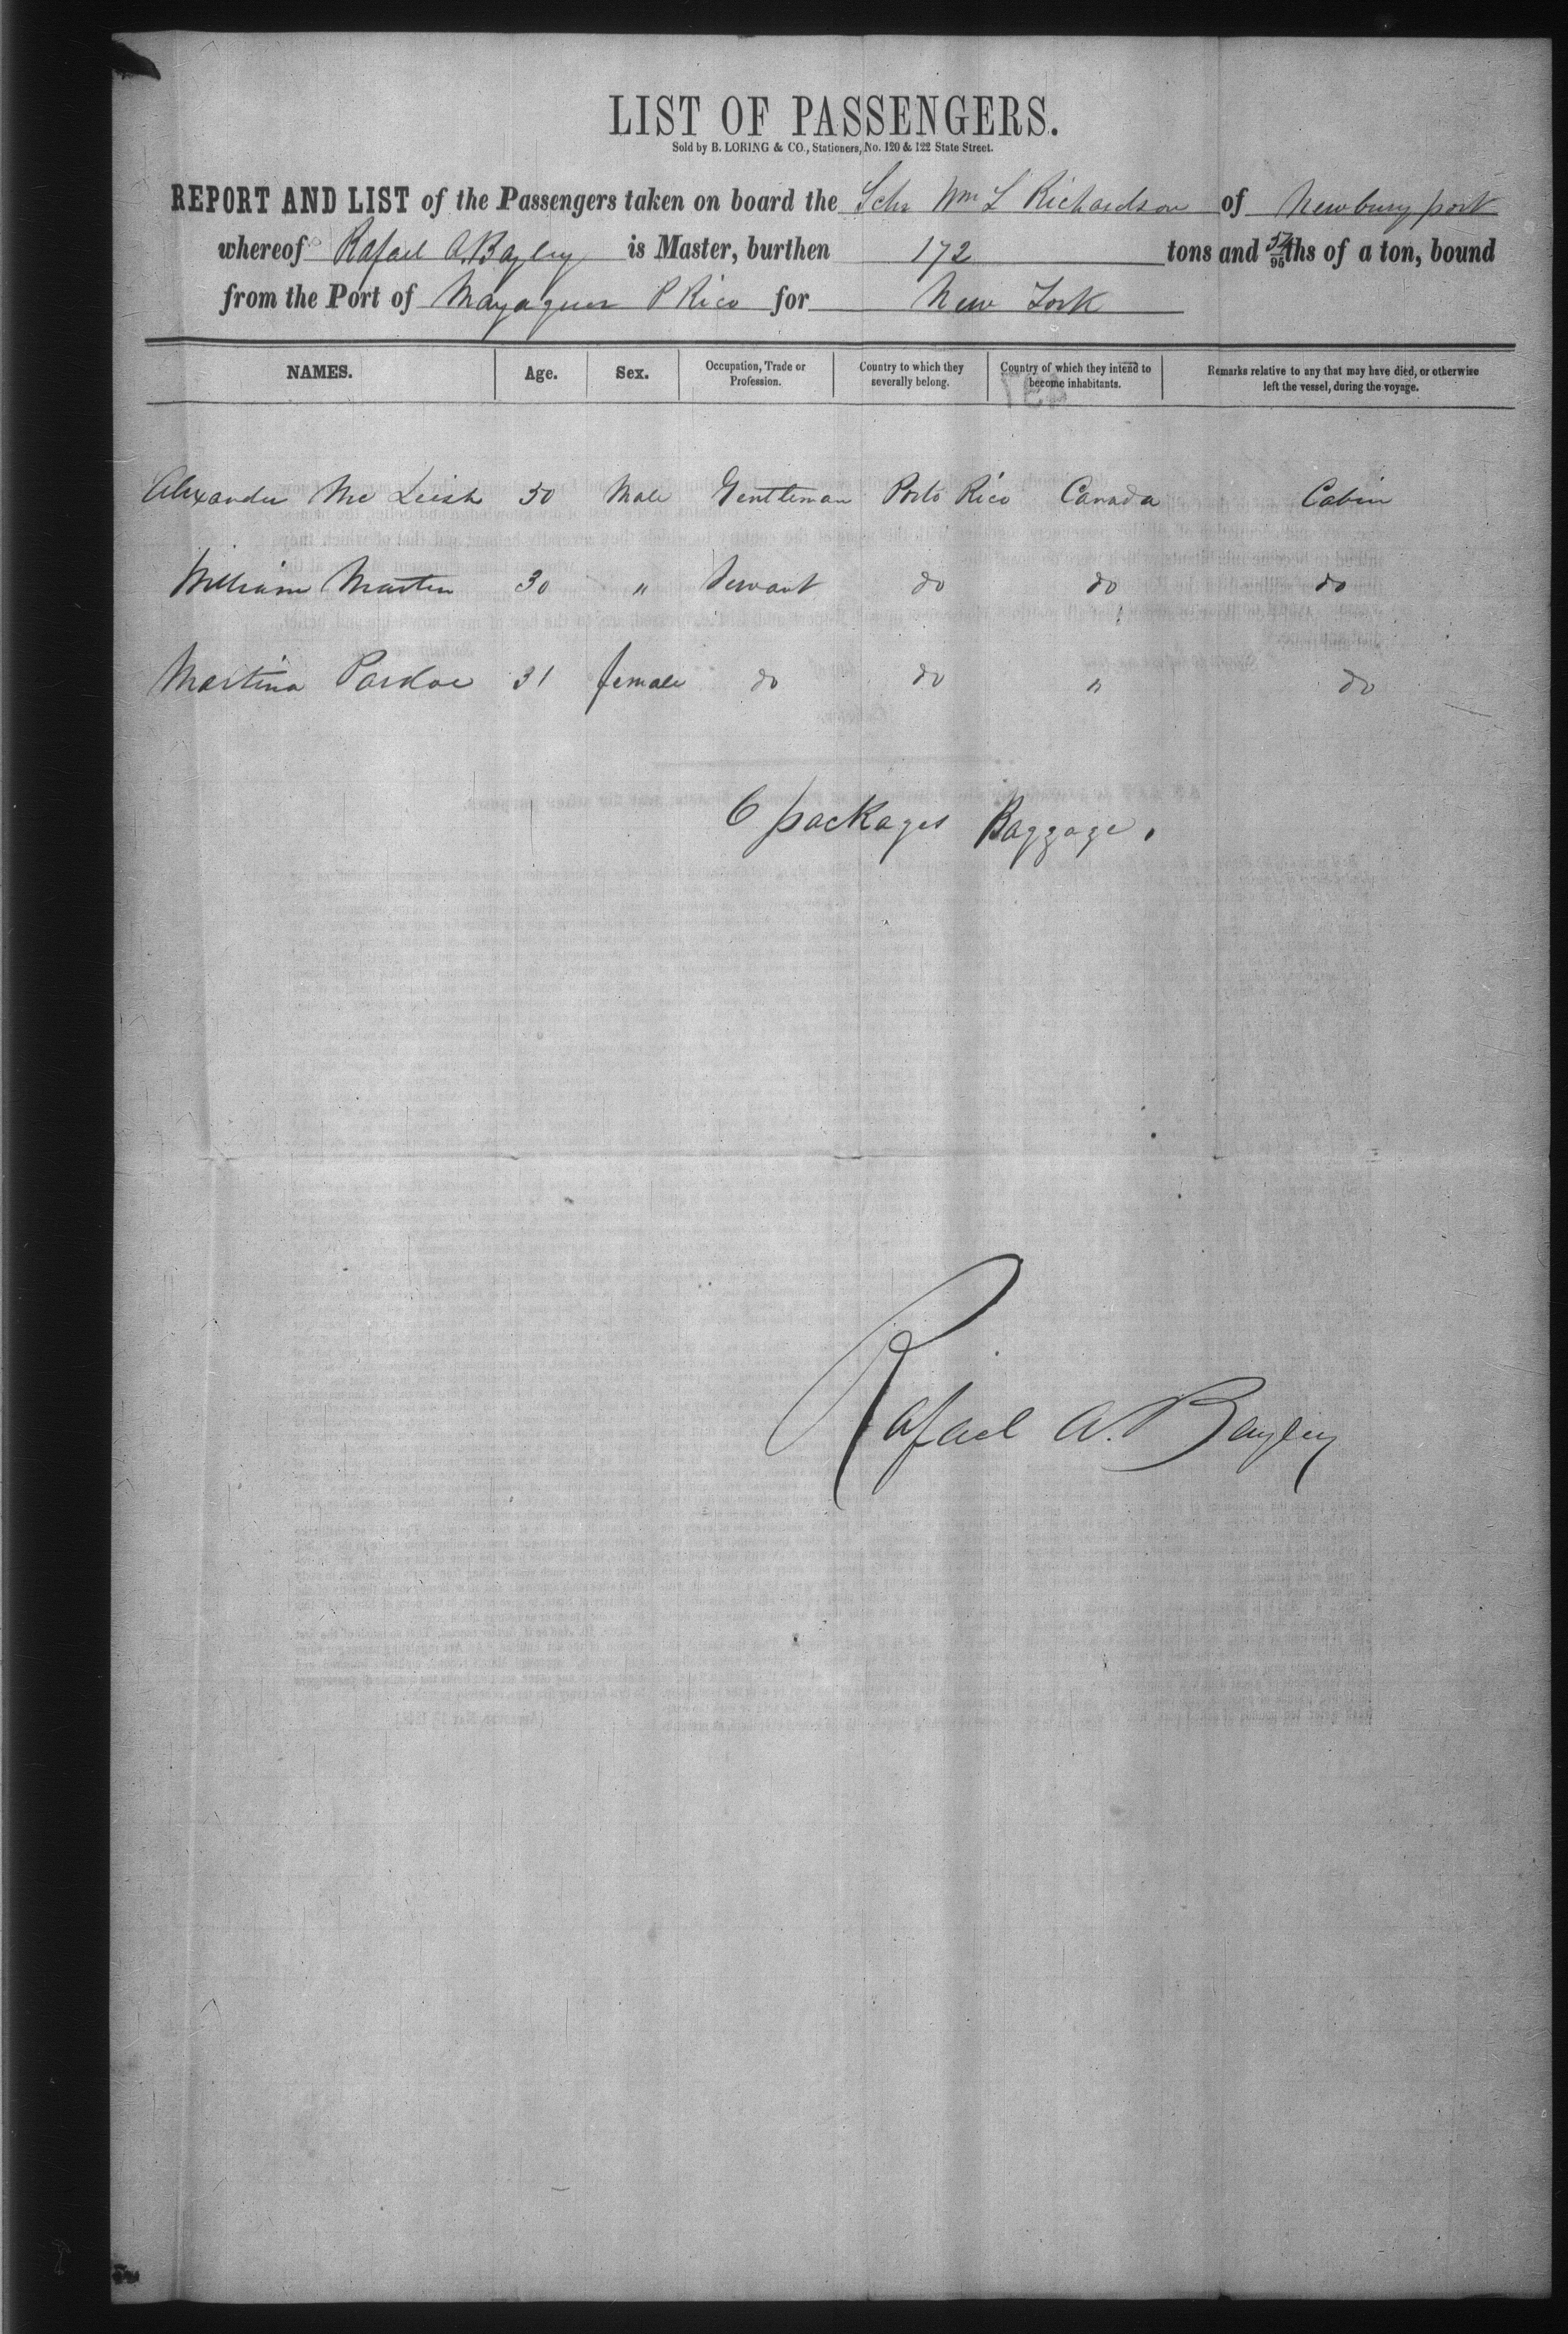 LIST OF PASSENGERS.
Sold by B. LORING & CO., Stationers, No. 120 & 122 State Street.
REPORT AND LIST of the Passengers taken on board the Schr Wm L Richardson of Newburyport
whereof Rafael A. Bayley is Master, burthen 172 tons and /95ths of a ton, bound
from the Port of Mayaguez P Rico for New York
NAMES. Age. Sex. Occupation, Trade or Profession. Country to which they severally belong. Country of which they intend to become inhabitants. Remarks relative to any that may have died, or otherwise left the vessel, during the voyage.
Alexander Mc Leish 50 Male Gentleman Porto Rico Canada Cabin
William Martin 30 " Servant do do do
Martina Pardoe 31 female do do " do
6 packages Baggage.
Rafael A. Bayley